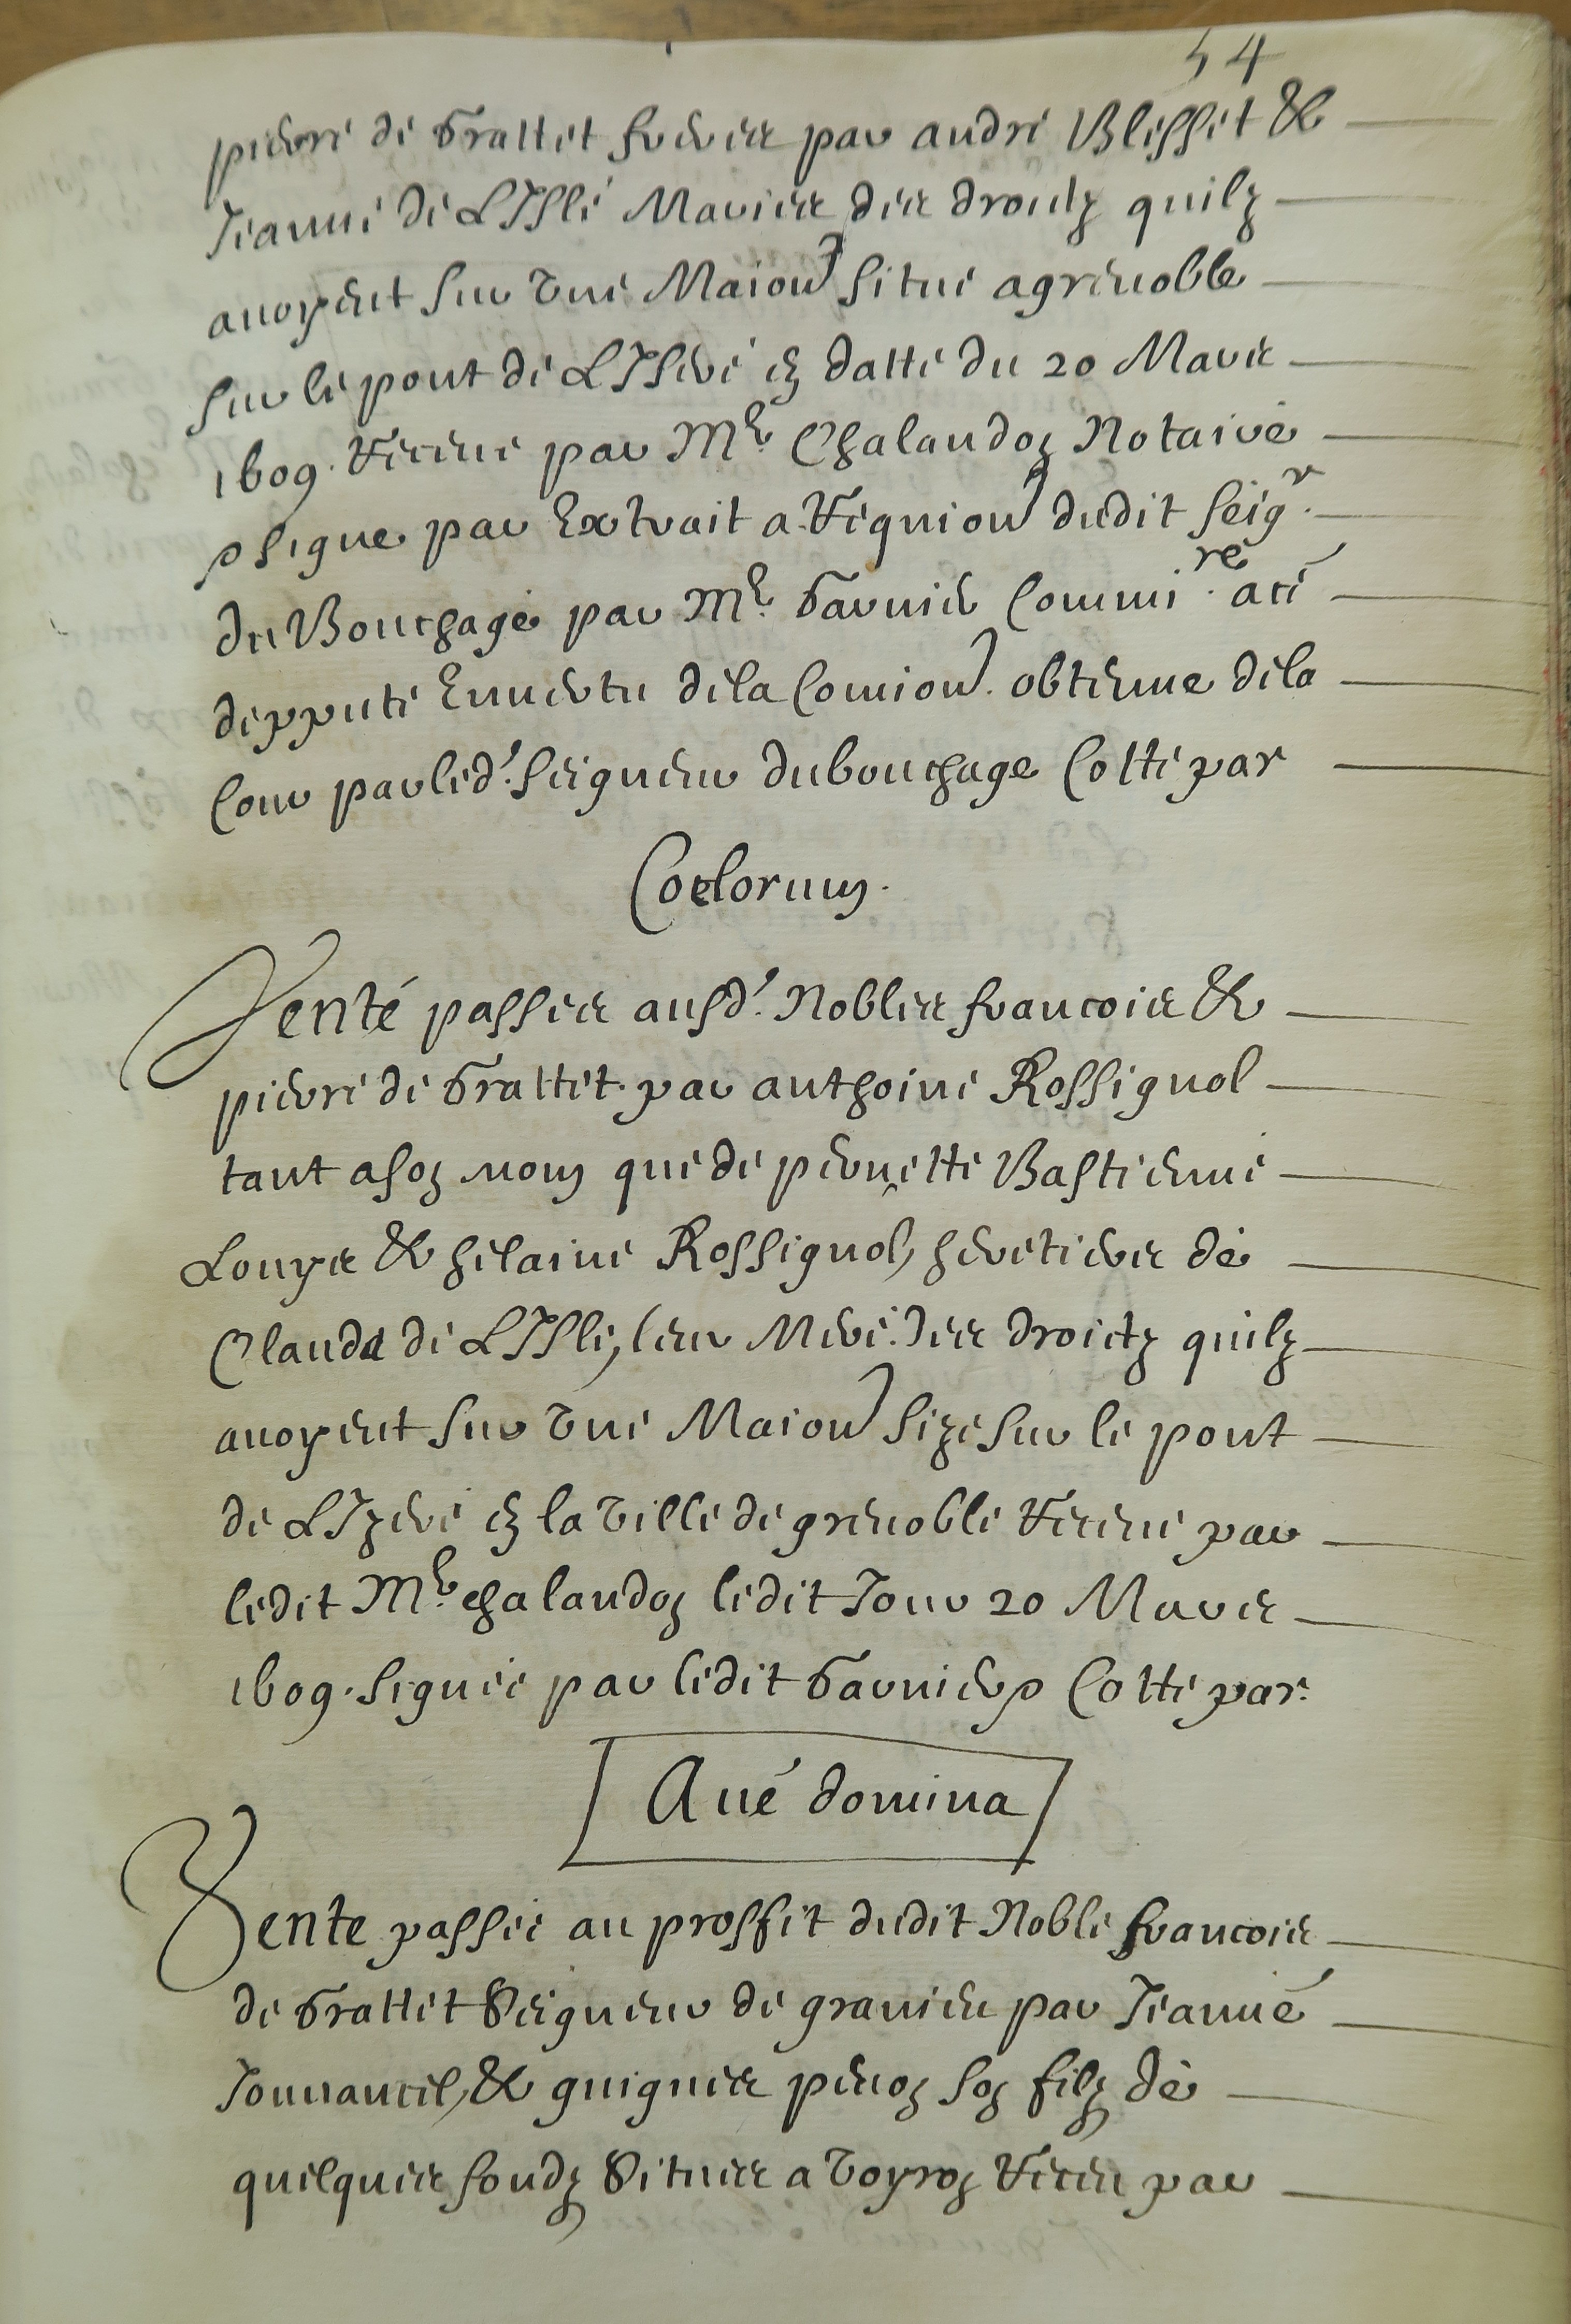 54
pierre de Grattet freres par andre Blisset &
Jeanne de LIsle Maries des droitz quilz
auoyent sur vne Maion situe a grenoble
sur le pont de LIsere en datte du 20 Mars
1609. Receue par Me. Chalandon Notaire
signe par Extrait a Requion dudit seigr.
du Bouchage par Me. Garnier Commire. a ce
depputé Enuertu dela Comion. obtenue dela
Cour par led. seigneur dubouchage Cotte par
Coelorum.
Vente passee ausd. Nobles francois &
pierre de Grattet. par anthoine Rossignol
tant a son nom que de pernette Bastienne
Louyse & helaine Rossignol, heretiers de
Clauda de LIsle, leur Mere. des droictz quilz
auoyent sur vne Maion size sur le pont
de LIzere en la ville de grenoble Receue par
ledit Me. chalandon ledit Jour 20 Mars
1609. signée par ledit Garnier Cotte par.
Aué domina
Vente passée au proffit dudit Noble francois
de Grattet Seigneur de granieu par Jeanne
Jouuancel, & guigues penon son filz de
quelques fondz Situes a Voyron Receu par